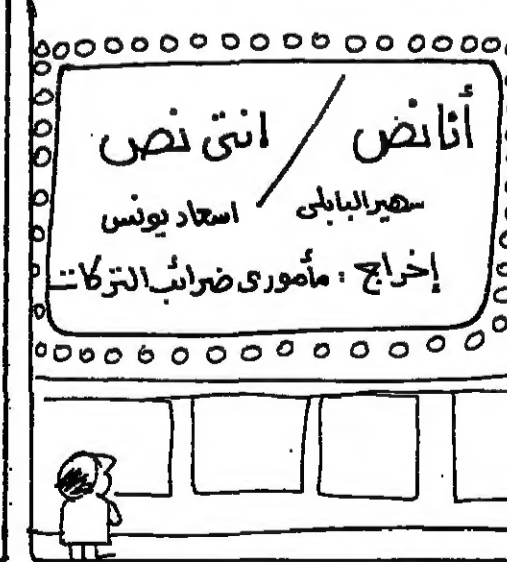 أنا نص / انتى نص
سهير البابلى اسعاد يونس
إخراج : مأمورى ضرائب التركات